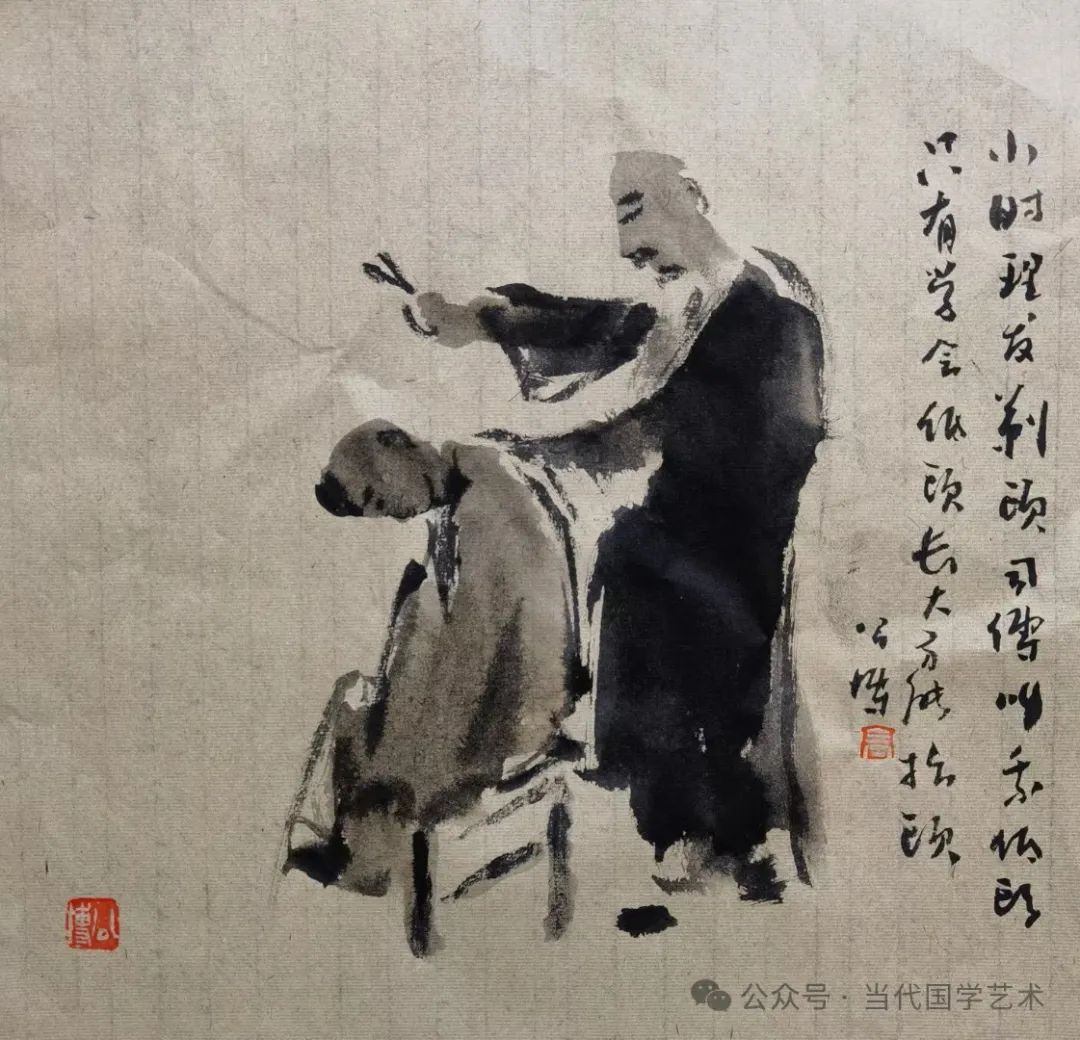 小时理发剃头司傅叫我低头
只有学会低头长大方能抬头
公博
公博
公众号 · 当代国学艺术